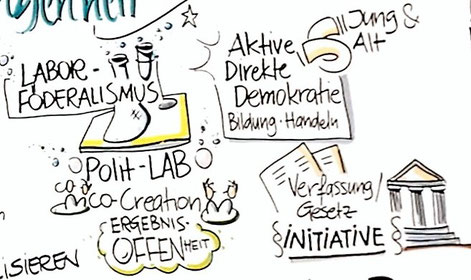 LABOR-
FÖDERALISMUS
Polit-LAB
CO-Creation
ERGEBNIS-
OFFENHEIT
Jung &
Alt
Aktive
Direkte
Demokratie
Bildung · Handeln
Verfassung/
Gesetz
§INITIATIVE§
LISIEREN